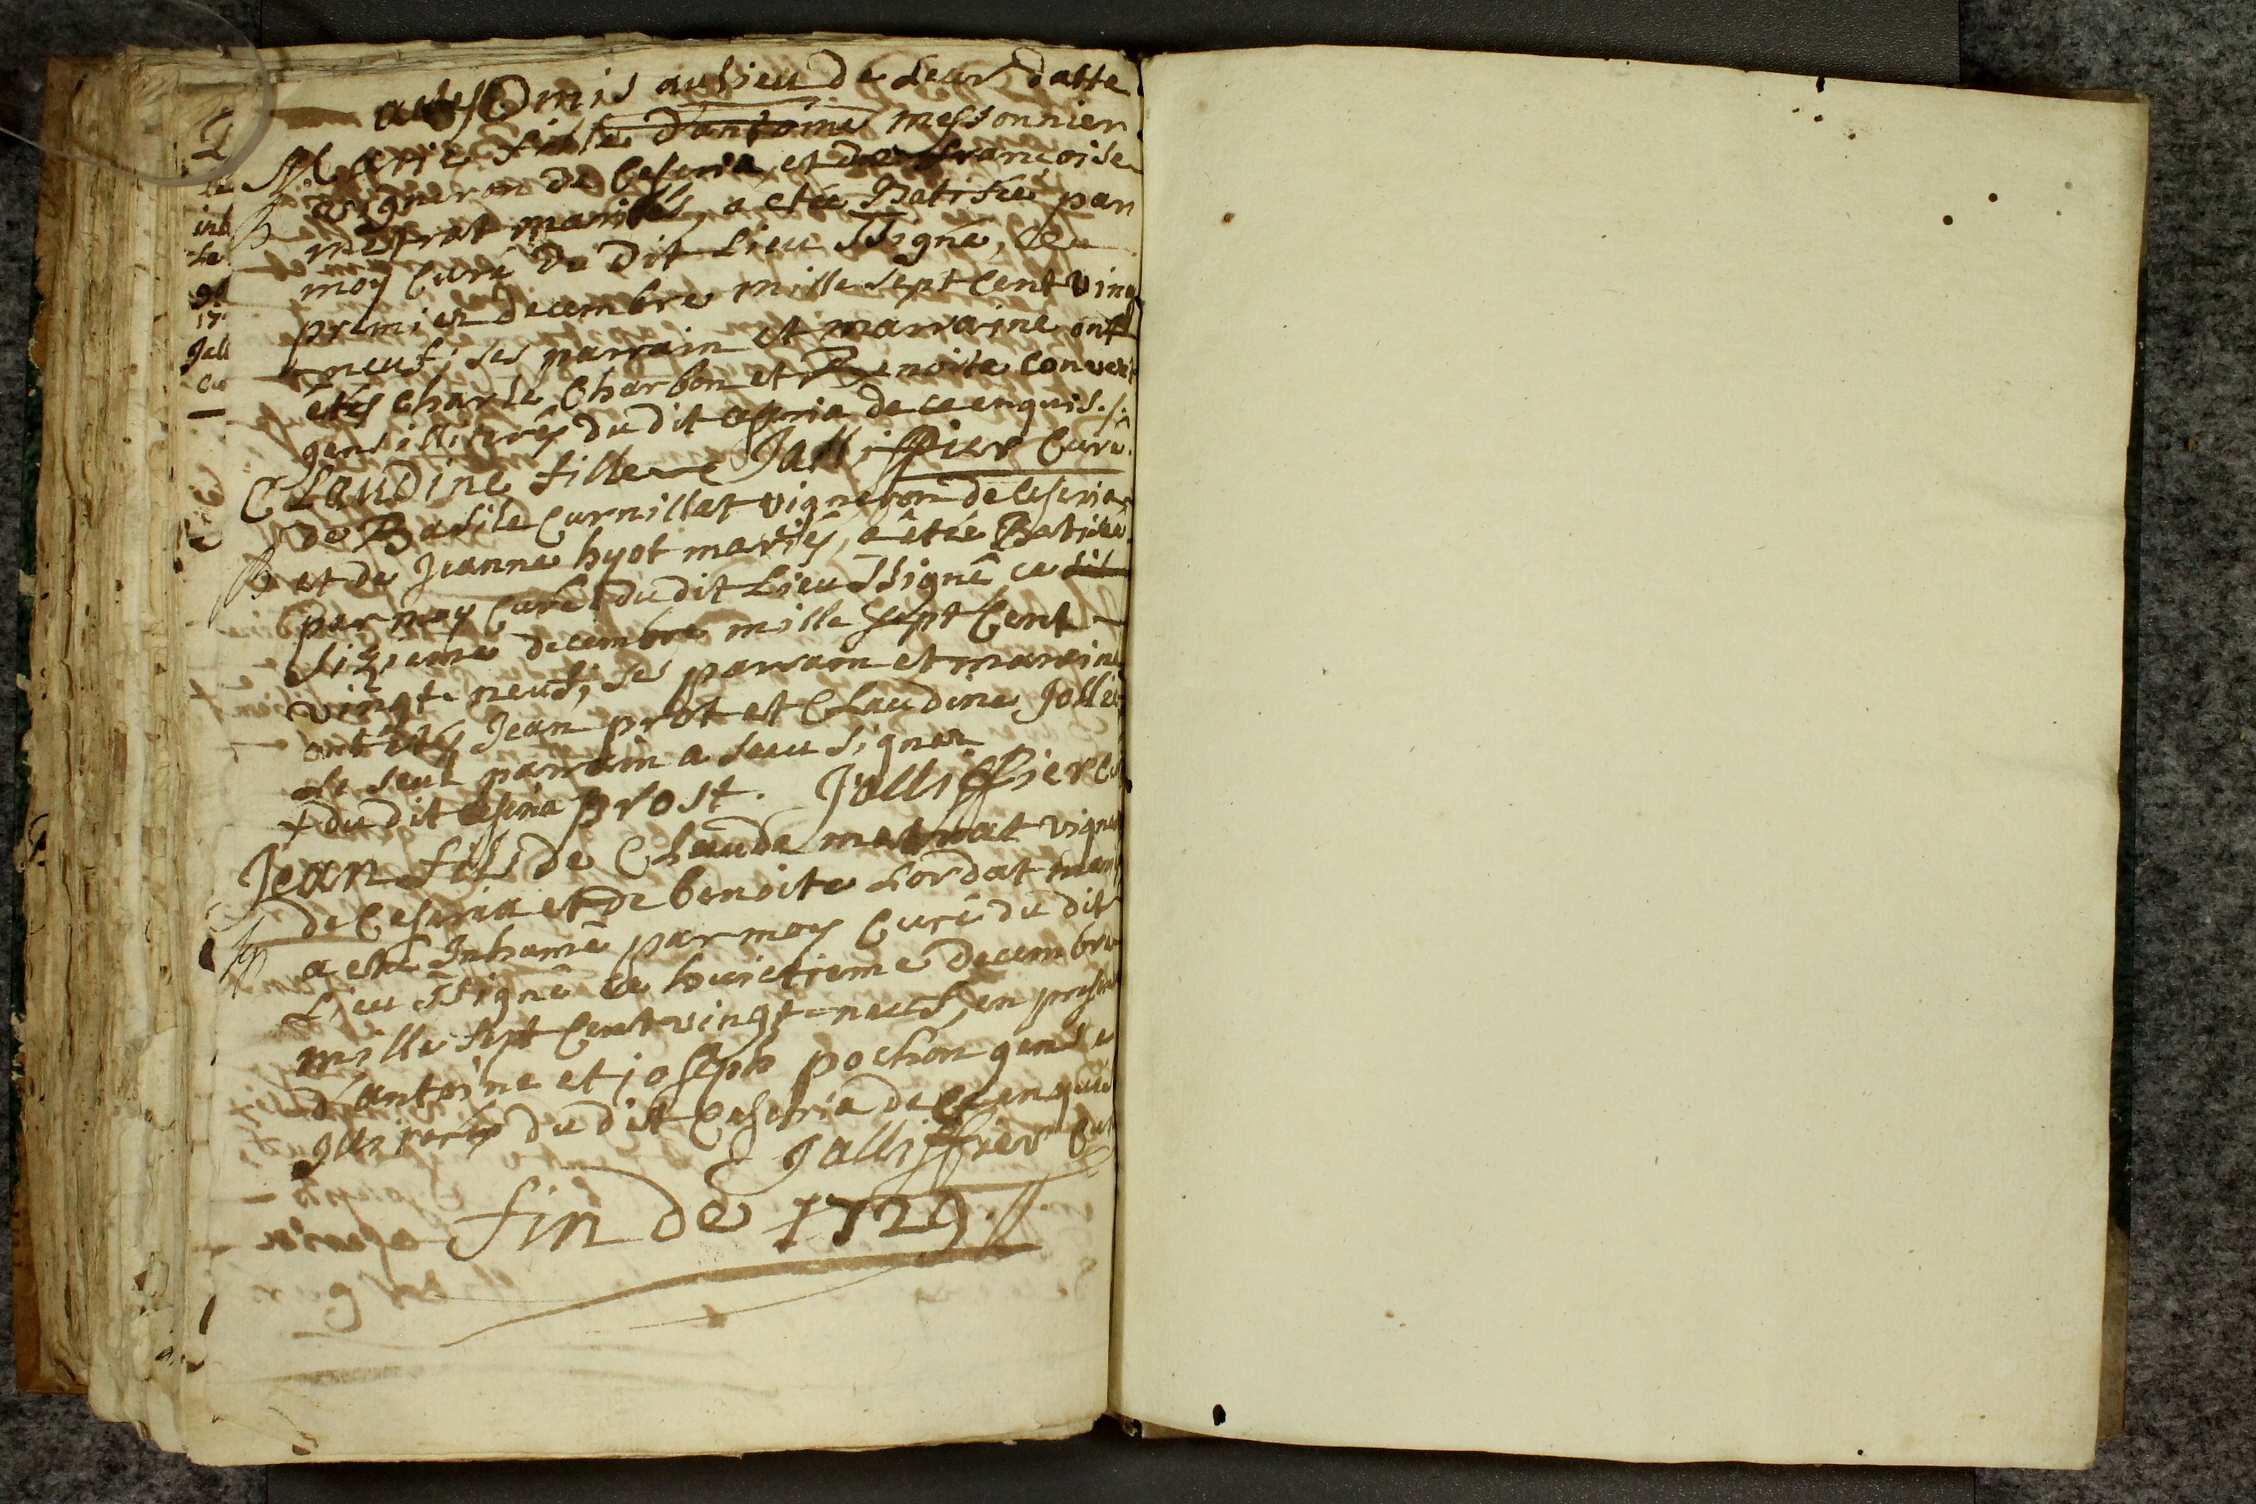 actes Omis au Lieu de Leur datte
Marie fille d'antoine messonnier
vigneron de Ceseria, et de françoise
mariés, a etée Batisée par
moy Curé du Dit Lieu ssigné, ce
premier decembre mille sept Cent Ving
neuf; ses parrain et marraine ont
étés Charle Charbon et Benoite Convert
gens illiterés du dit Ceseria de ce enquis.
Jalliffier Curé.
CLaudine fille
de Basile Curnillat vigneron de Ceseria
et de Jeanne hyot mariés, a êtée Batisée
par moy Curé du dit Lieu ssigné ce
sizieme decembre mille sept Cent
vingt-neuf, ses parrain et maraine
ont étés Jean prot et CLaudine Jollie
Le seul parrain a sceu signer
+ du dit Ceseria prost. Jalliffier c
Jean fils de CLaude vigne
de Ceseria et de benoite Lordat mar
a eté Inhumé par moy Curé du dit
Lieu ssigné ce huictieme decembre
mille sept Cent vingt-neuf, en presen
d'antoine et joseph pochon gens
Illiterés du dit Ceseria de Ce enquis
Jalliffier Cur
fin de 1729 //.